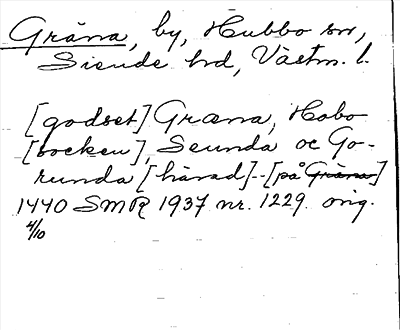 Gräna, by, Hubbo sn,
Siende hd, Västm. l.
[godset] Græna, Hobo
[socken], Seunda oc Go-
runda [härad]--[på Gräna]
1440 SMR 1937 nr. 1229. orig.
4/10